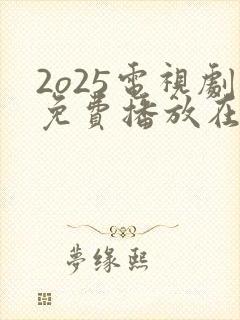 2o25電視劇
免費播放在
夢缘熙